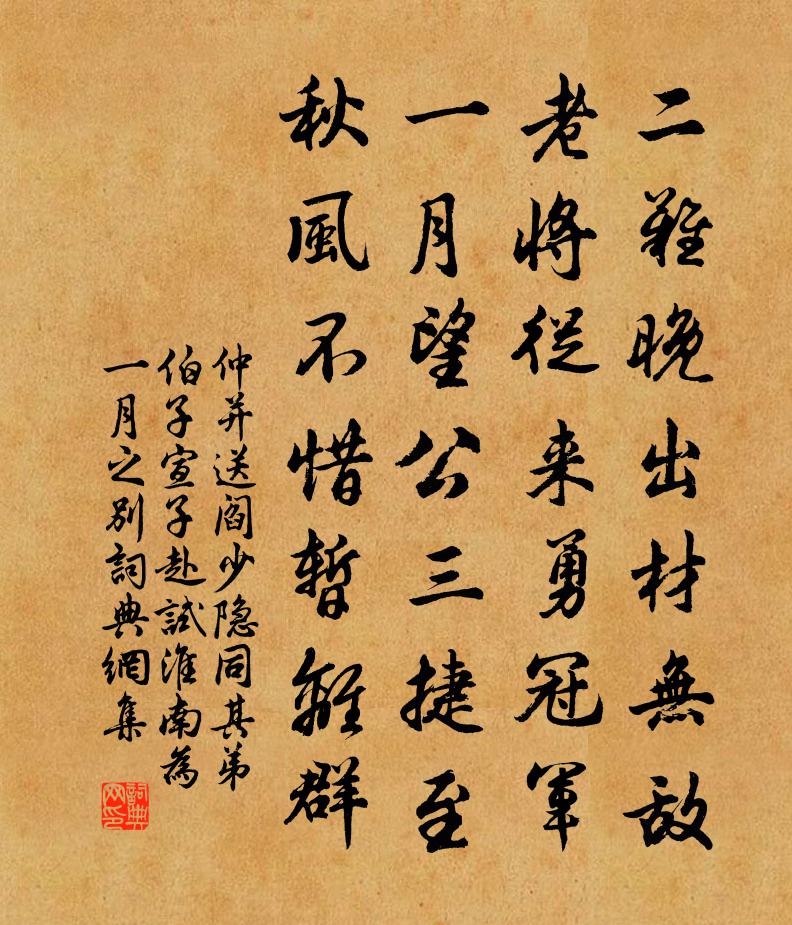 二難晚出材無敌
老將從来勇冠軍
一月望公三捷至
秋風不惜暫離群
仲并送閻少隐同其弟
伯子宣子赴試淮南為
一月之别詞典網集
詞典网印